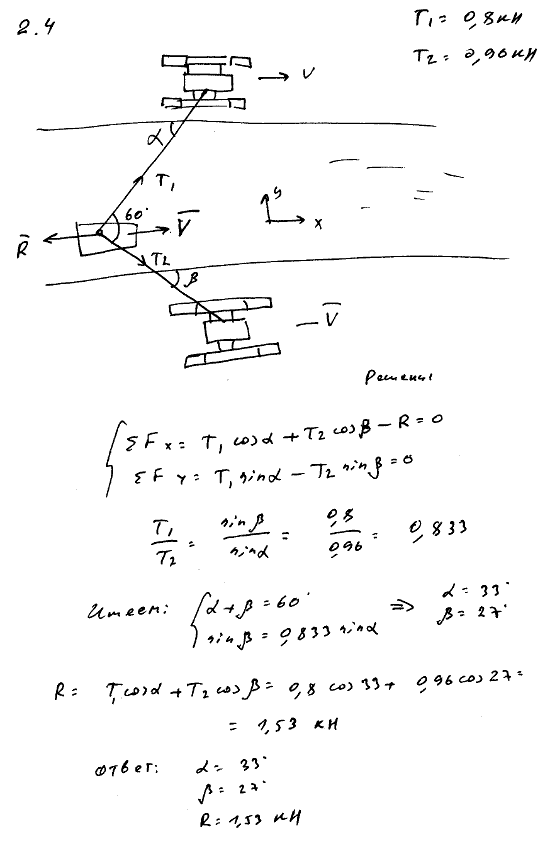 2.4
T₁ = 0,8 кН
T₂ = 0,96 кН
V
α
T₁
y
60°
x
R̅
V̅
T₂
β
V̅
Решение
ΣFx = T₁ cosα + T₂ cosβ − R = 0
ΣFy = T₁ sinα − T₂ sinβ = 0
T₁/T₂ = sinβ/sinα = 0,8/0,96 = 0,833
Имеем: α + β = 60° ⇒ α = 33°
sinβ = 0,833 sinα β = 27°
R = T₁cosα + T₂ cosβ = 0,8 cos 33 + 0,96 cos 27 =
= 1,53 кН
Ответ: α = 33°
β = 27°
R = 1,53 кН